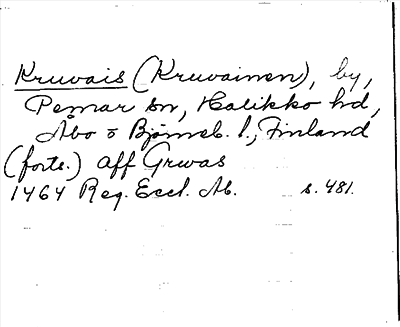 Kruvais (Kruvainen), by,
Pemar sn, Halikko hd,
Åbo o Björneb. l., Finland
(forts.) aff Grwas
1464 Reg. Eccl. Ab. s. 481.